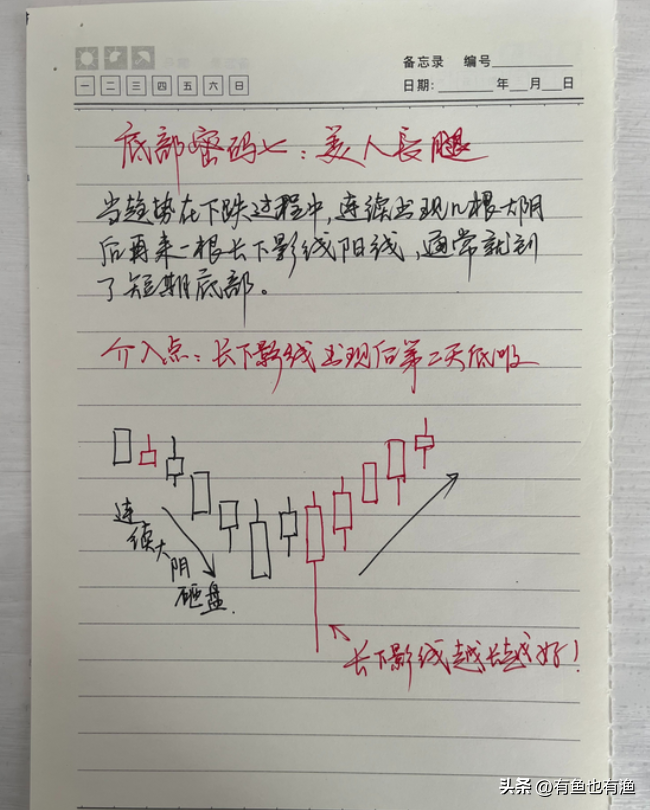 备忘录 编号
一 二 三 四 五 六 日
日期: 年 月 日
底部密码七：美人长腿
当趋势在下跌过程中，连续出现几根大阴
后再来一根长下影线阳线，通常就到
了短期底部。
介入点：长下影线出现后第二天低吸
连续大阴砸盘
长下影线越长越好！
头条 @有鱼也有渔